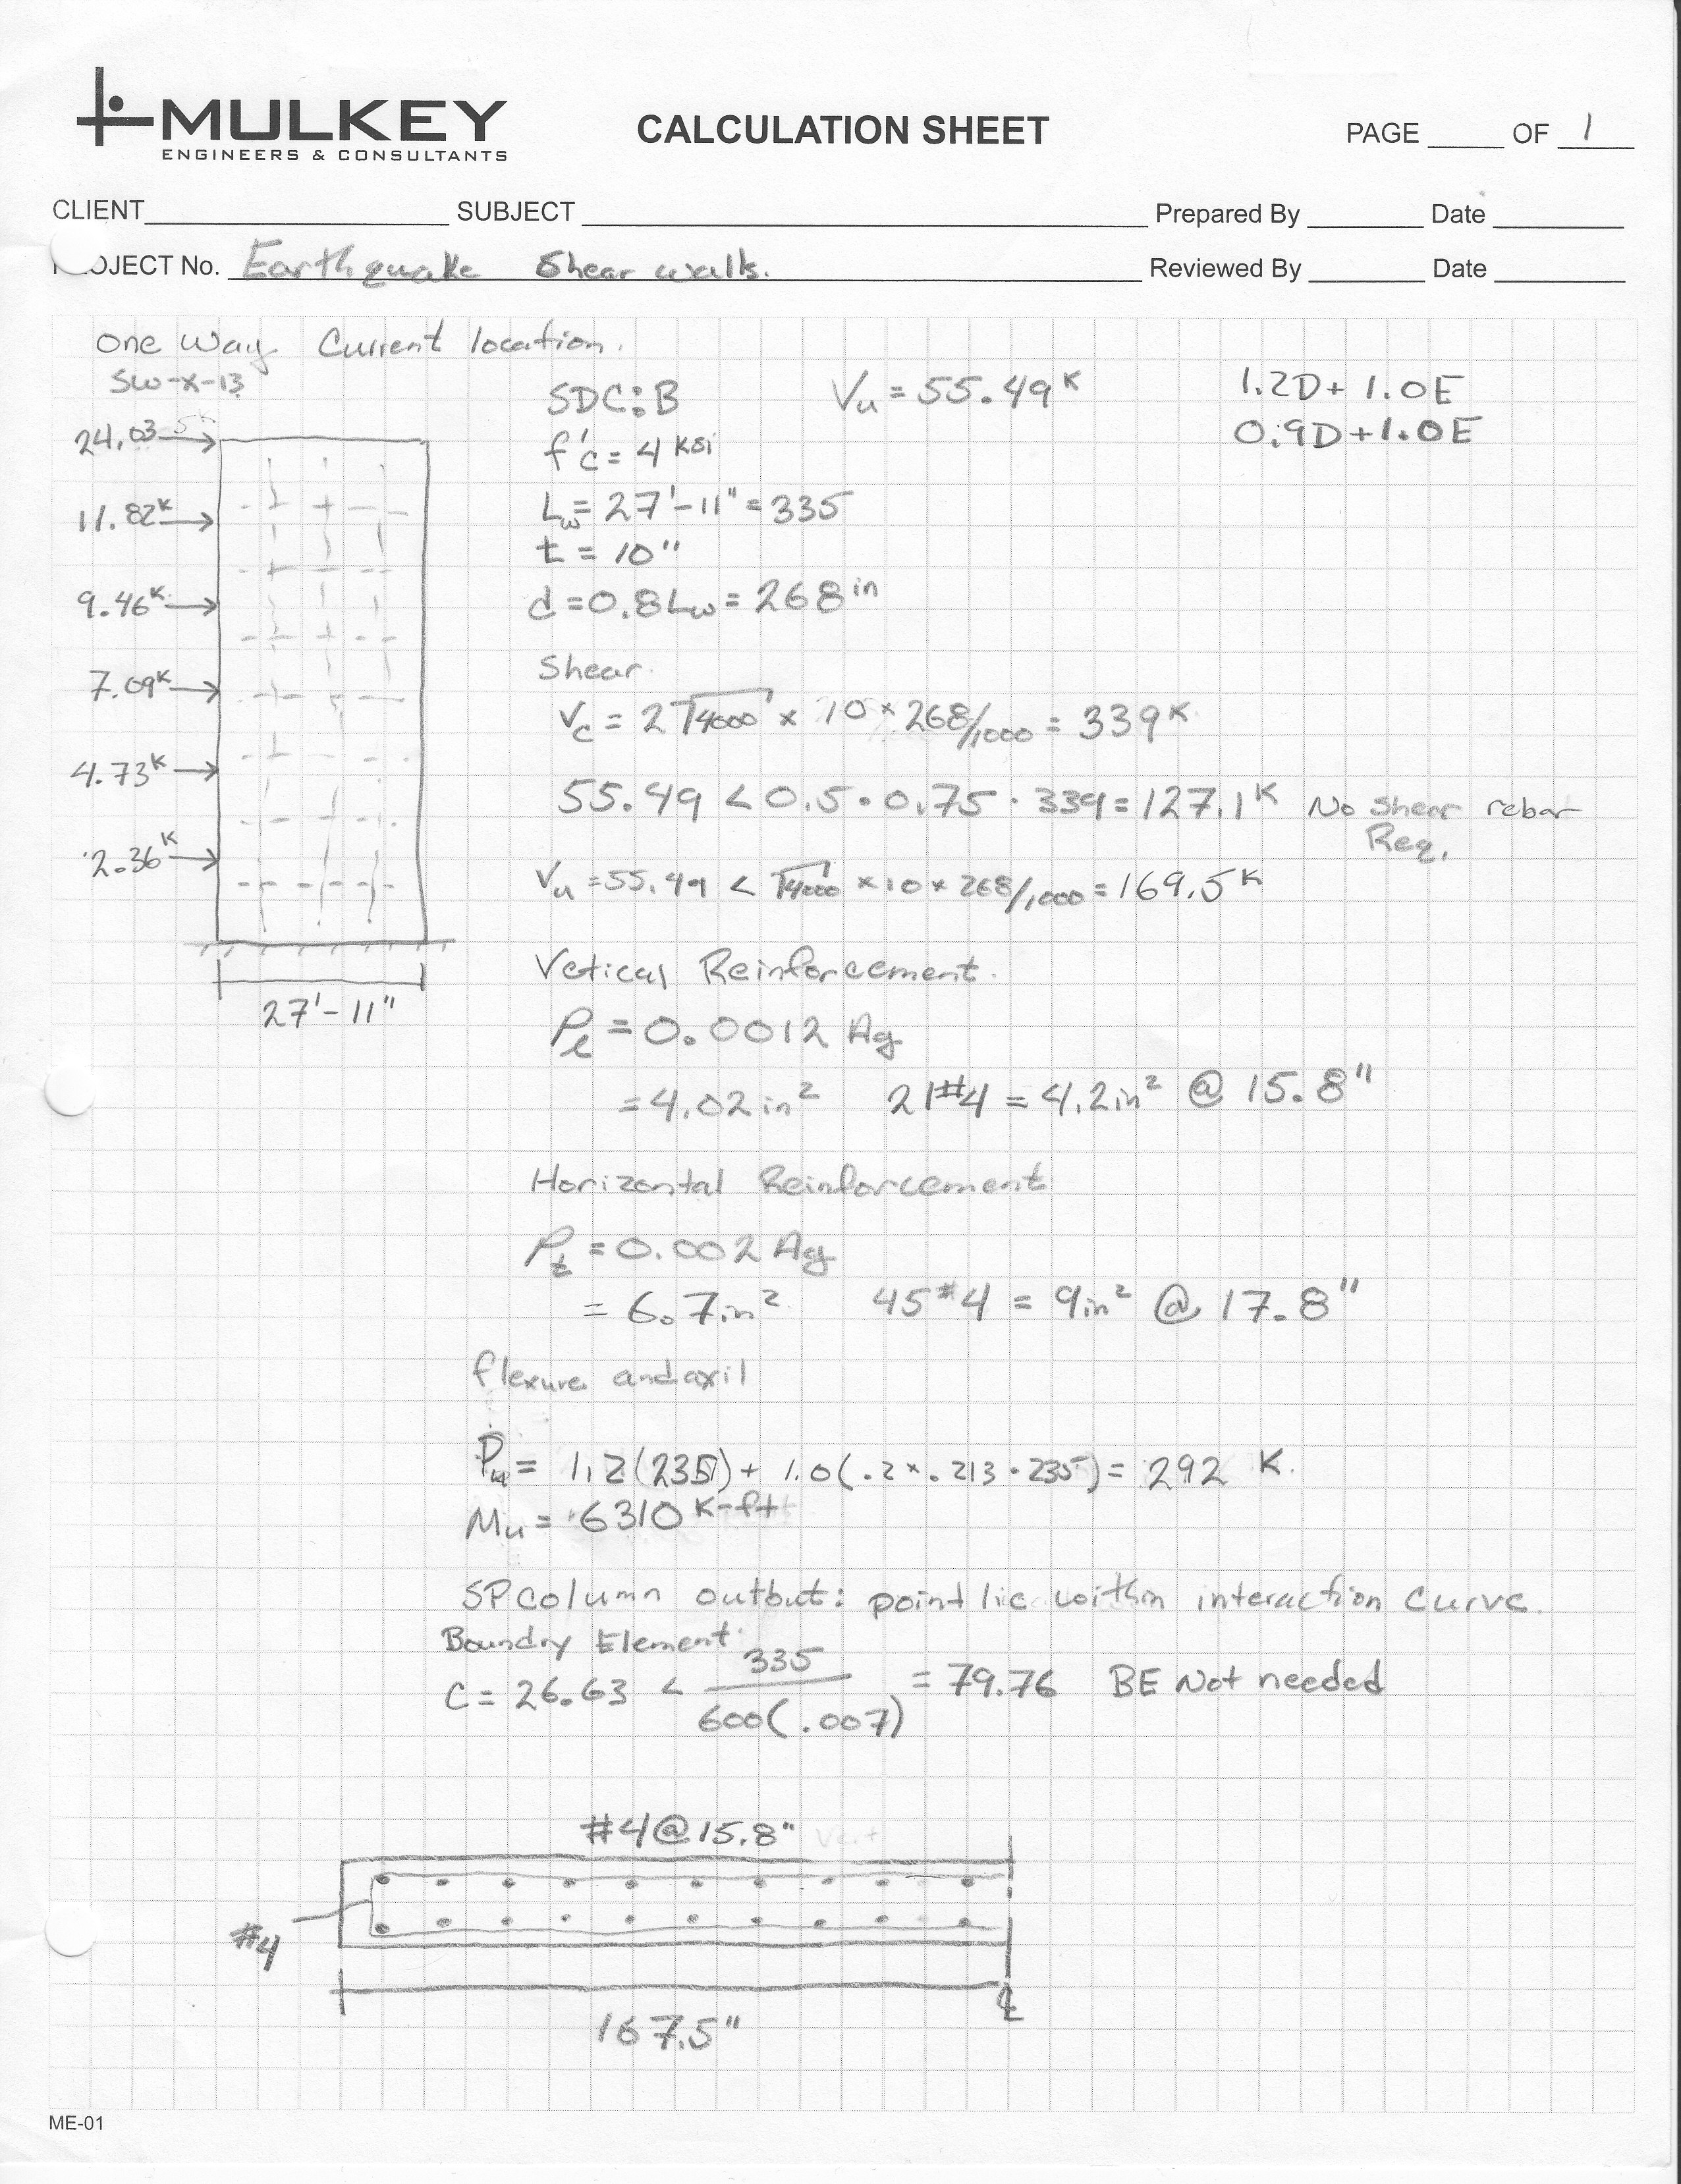 MULKEY
ENGINEERS & CONSULTANTS
CALCULATION SHEET
PAGE ____ OF 1
CLIENT SUBJECT Prepared By Date
OJECT No. Earthquake Shear walls. Reviewed By Date
One Way Current location.
SW-X-13
SDC:B Vu = 55.49 K 1.2D + 1.0E
0.9D + 1.0E
24.03
f'c = 4 ksi
11.82K
Lw = 27'-11" = 335
t = 10"
9.46K
d = 0.8Lw = 268 in
Shear.
7.09K
Vc = 2 √4000 × 10 × 268/1000 = 339 K
4.73K
55.49 < 0.5 · 0.75 · 339 = 127.1 K No Shear rebar
Req.
2.36K
Vu = 55.49 < √4000 × 10 × 268/1000 = 169.5 K
27'-11"
Vetical Reinforcement.
Pl = 0.0012 Ag
= 4.02 in² 21#4 = 4.2in² @ 15.8"
Horizontal Reinforcement
Pt = 0.002 Ag
= 6.7in² 45#4 = 9in² @ 17.8"
flexure and axil
Pu = 1.2(235) + 1.0(.2×.213·235) = 292 K.
Mu = 6310 K-ft
SPcolumn output: point lie within interaction curve.
Boundry Element
C = 26.63 < 335 / 600(.007) = 79.76 BE Not needed
#4@15.8" vert
#4
167.5"
℄
ME-01